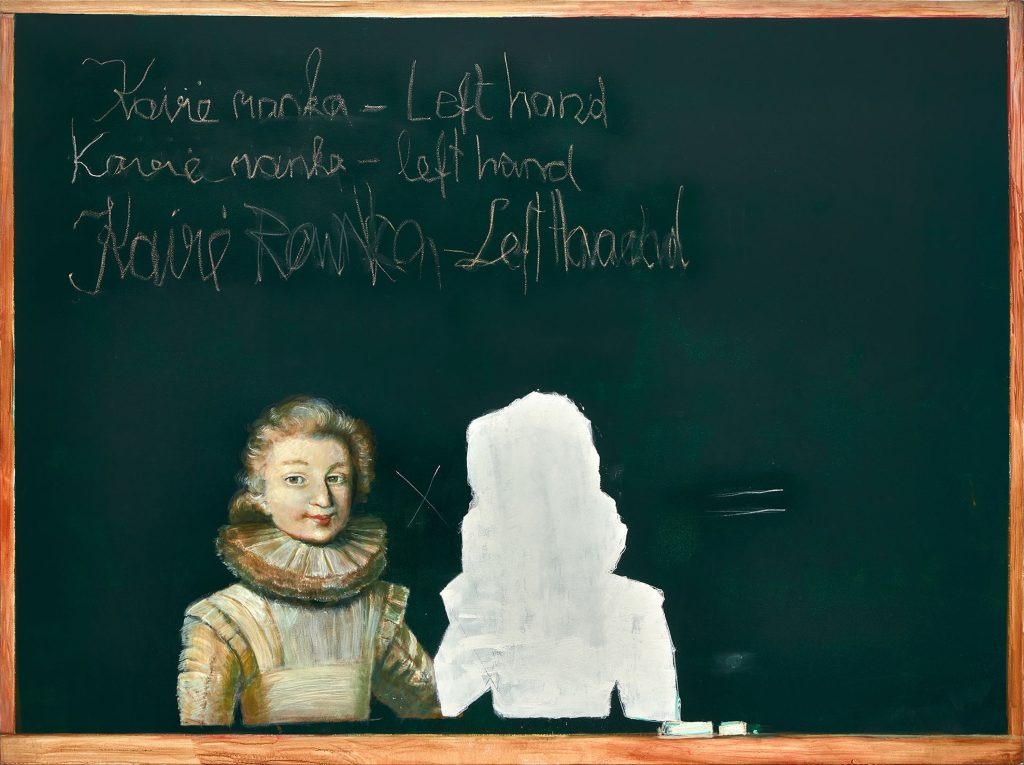 Kairė ranka – Left hand
Kairė ranka – left hand
Kairė Ranka, – Left haand
× =